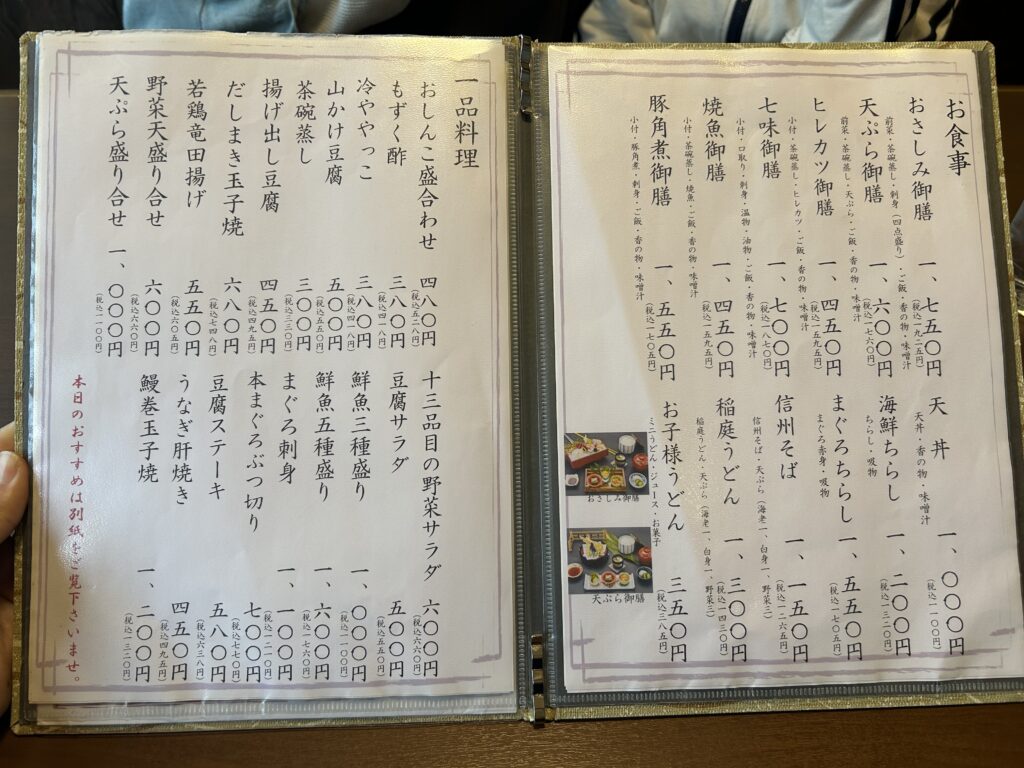 お食事
おさしみ御膳 一、七五〇円
前菜・茶碗蒸し・刺身(四点盛り)・ご飯・香の物・味噌汁 (税込一九二五円)
天ぷら御膳 一、六〇〇円
前菜・茶碗蒸し・天ぷら・ご飯・香の物・味噌汁 (税込一七六〇円)
ヒレカツ御膳 一、四五〇円
小付・茶碗蒸し・ヒレカツ・ご飯・香の物・味噌汁 (税込一五九五円)
七味御膳 一、七〇〇円
小付・口取り・刺身・温物・油物・ご飯・香の物・味噌汁 (税込一八七〇円)
焼魚御膳 一、四五〇円
小付・茶碗蒸し・焼魚・ご飯・香の物・味噌汁 (税込一五九五円)
豚角煮御膳 一、五五〇円
小付・豚角煮・刺身・ご飯・香の物・味噌汁 (税込一七〇五円)
天丼 一、〇〇〇円
天丼・香の物・味噌汁 (税込一一〇〇円)
海鮮ちらし 一、二〇〇円
ちらし・吸物 (税込一三二〇円)
まぐろちらし 一、五五〇円
まぐろ赤身・吸物 (税込一七〇五円)
信州そば 一、一五〇円
信州そば・天ぷら(海老一、白身一、野菜三) (税込一二六五円)
稲庭うどん 一、三〇〇円
稲庭うどん・天ぷら(海老一、白身一、野菜三) (税込一四三〇円)
お子様うどん 三五〇円
ミニうどん・ジュース・お菓子 (税込三八五円)
おさしみ御膳
天ぷら御膳
一品料理
おしんこ盛合わせ 四八〇円
(税込五二八円)
もずく酢 三八〇円
(税込四一八円)
冷ややっこ 三八〇円
(税込四一八円)
山かけ豆腐 五〇〇円
(税込五五〇円)
茶碗蒸し 三〇〇円
(税込三三〇円)
揚げ出し豆腐 四五〇円
(税込四九五円)
だしまき玉子焼 六八〇円
(税込七四八円)
若鶏竜田揚げ 五五〇円
(税込六〇五円)
野菜天盛り合せ 六〇〇円
(税込六六〇円)
天ぷら盛り合せ 一、〇〇〇円
(税込一一〇〇円)
十三品目の野菜サラダ 六〇〇円
(税込六六〇円)
豆腐サラダ 五〇〇円
(税込五五〇円)
鮮魚三種盛り 一、〇〇〇円
(税込一一〇〇円)
鮮魚五種盛り 一、六〇〇円
(税込一七六〇円)
まぐろ刺身 一、一〇〇円
(税込一二一〇円)
本まぐろぶつ切り 七〇〇円
(税込七七〇円)
豆腐ステーキ 五八〇円
(税込六三八円)
うなぎ肝焼き 四五〇円
(税込四九五円)
鰻巻玉子焼 一、二〇〇円
(税込一三二〇円)
本日のおすすめは別紙をご覧下さいませ。